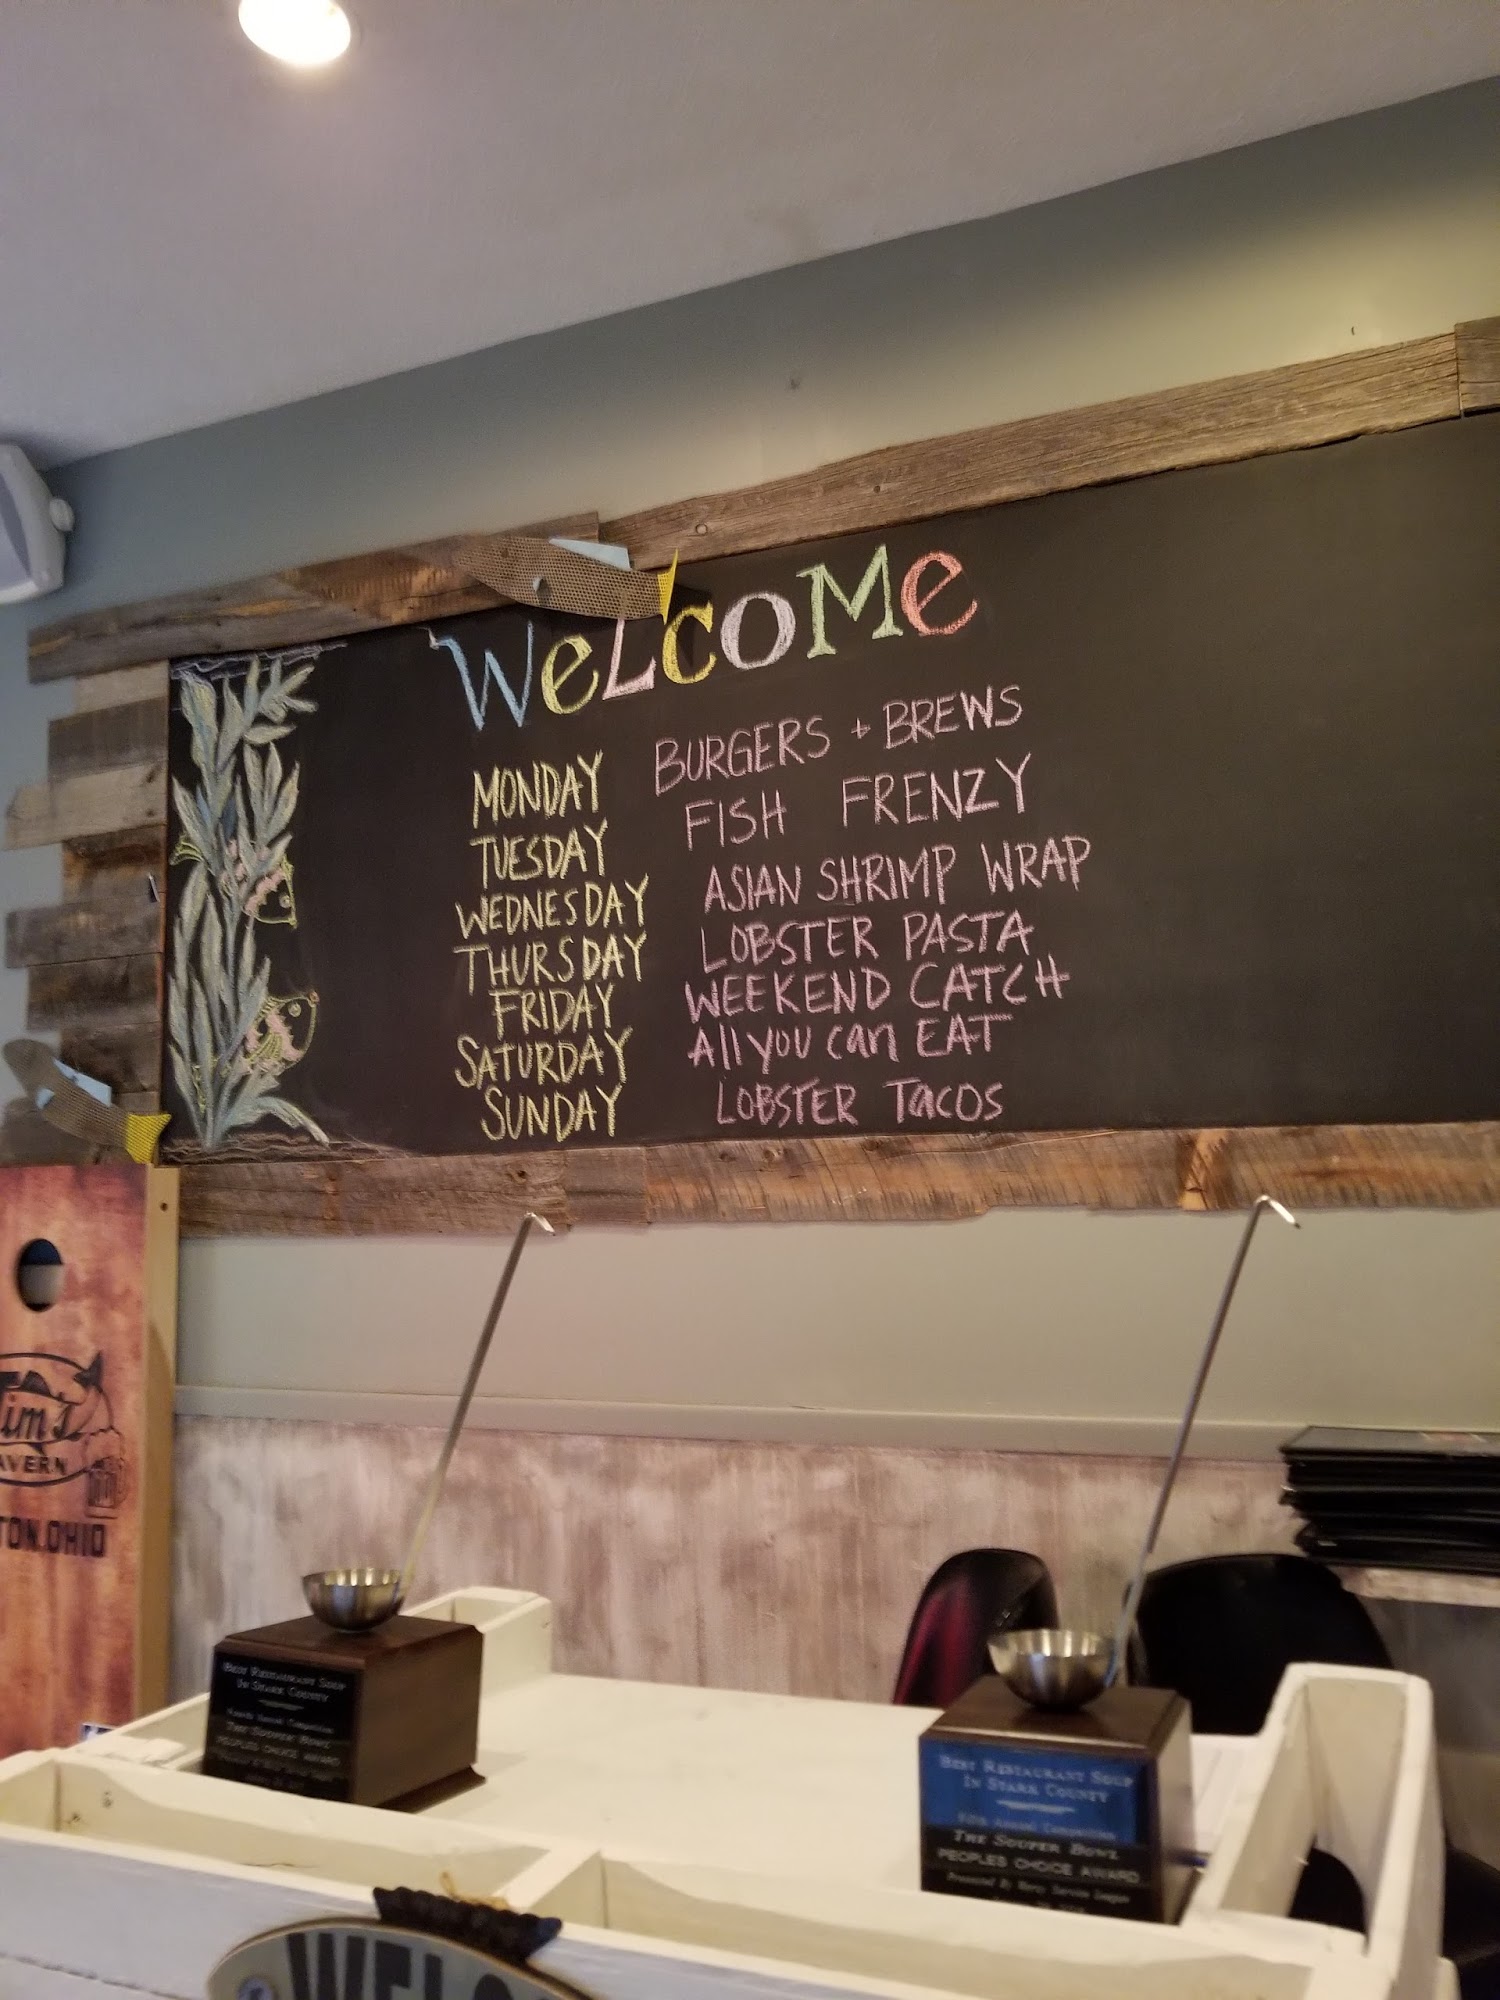 WeLcoMe
MONDAY BURGERS + BREWS
TUESDAY FISH FRENZY
WEDNESDAY ASIAN SHRIMP WRAP
THURSDAY LOBSTER PASTA
FRIDAY WEEKEND CATCH
SATURDAY All you can EAT
SUNDAY LOBSTER TACOS
im's
AVERN
TON, OHIO
BEST RESTAURANT SOUP
IN STARK COUNTY
THE SOUPER BOWL
PEOPLES CHOICE AWARD
BEST RESTAURANT SOUP
IN STARK COUNTY
THE SOUPER BOWL
PEOPLES CHOICE AWARD
WELC